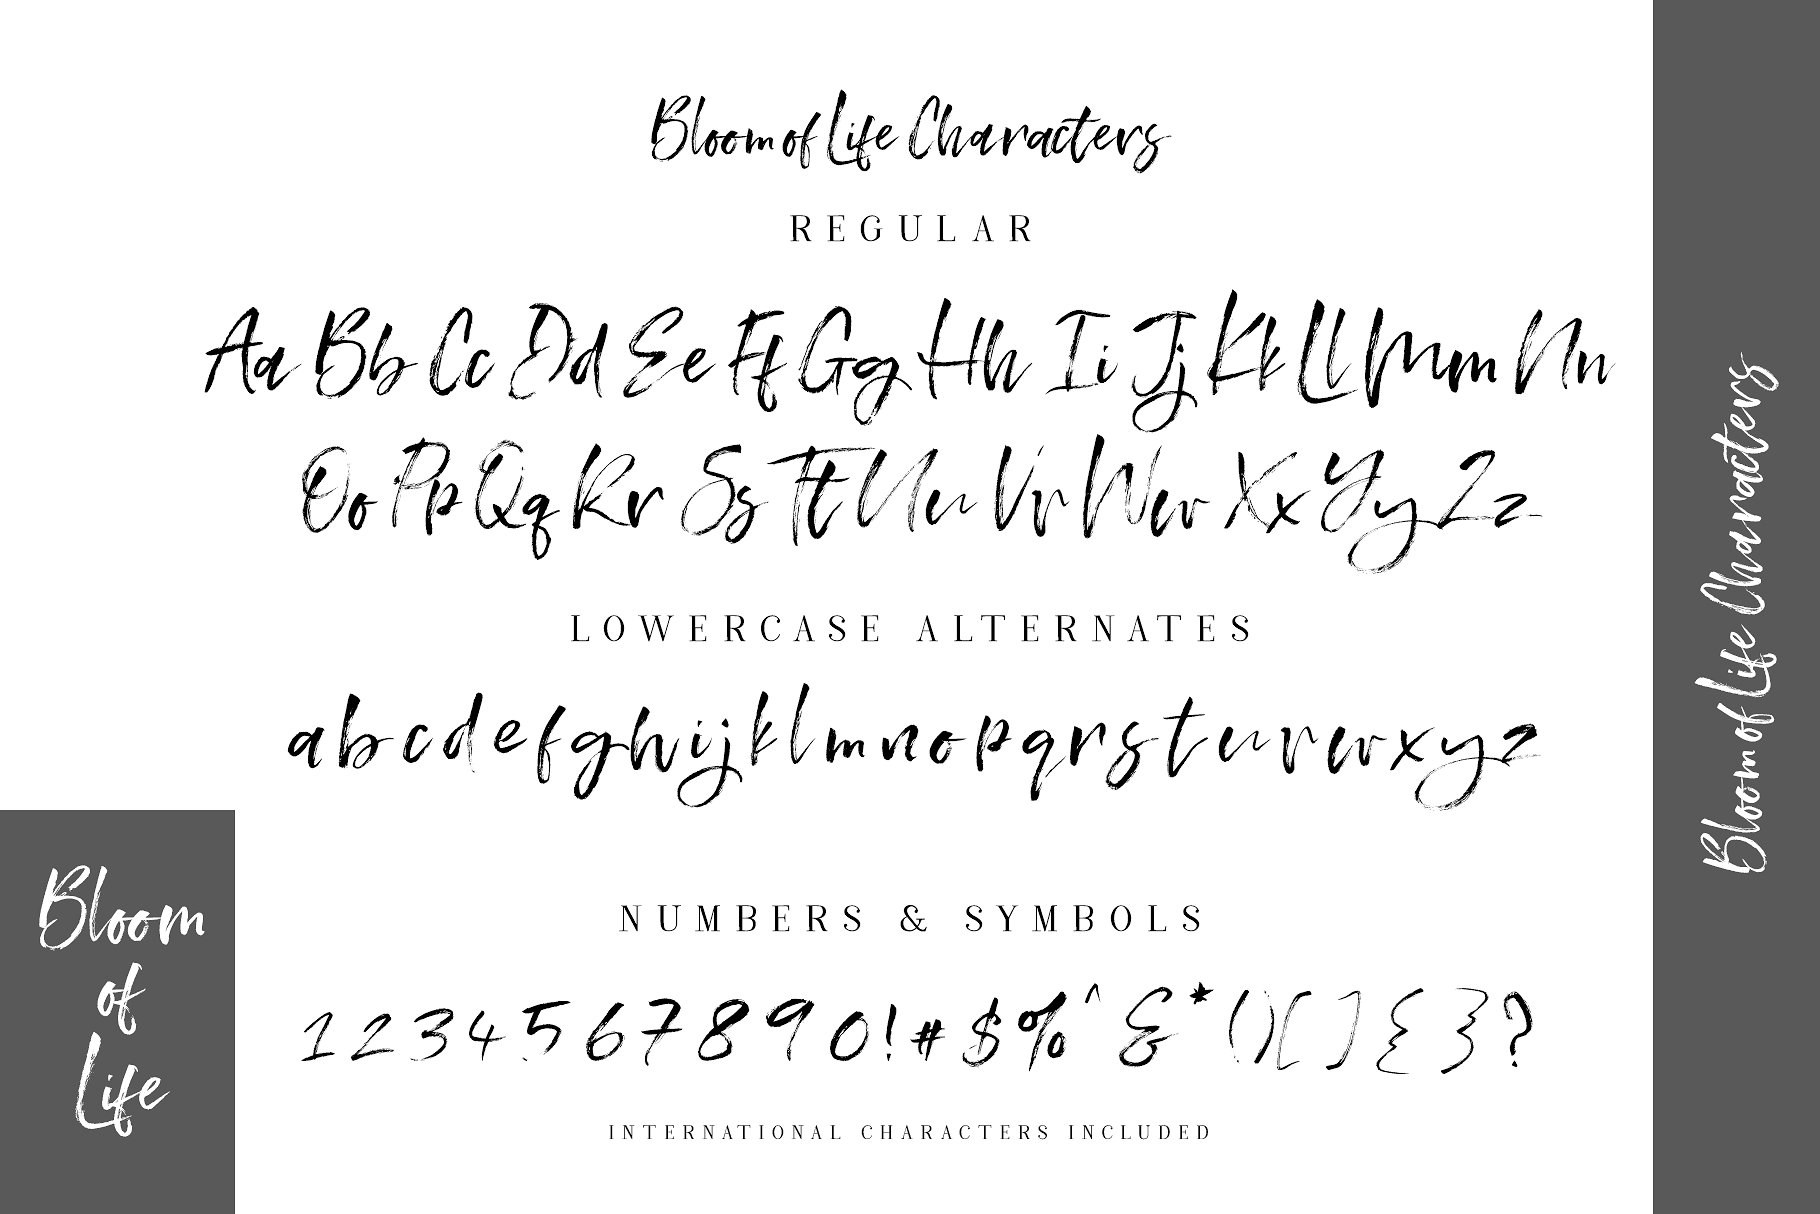 Bloom of Life Characters
REGULAR
Aa Bb Cc Dd Ee Ff Gg Hh Ii Jj Kk Ll Mm Nn
Oo Pp Qq Rr Ss Tt Uu Vv Ww Xx Yy Zz
LOWERCASE ALTERNATES
a b c d e f g h i j k l m n o p q r s t u v w x y z
NUMBERS & SYMBOLS
1 2 3 4 5 6 7 8 9 0 ! # $ % ^ & * ( ) [ ] { } ?
INTERNATIONAL CHARACTERS INCLUDED
Bloom
of
Life
Bloom of Life Characters